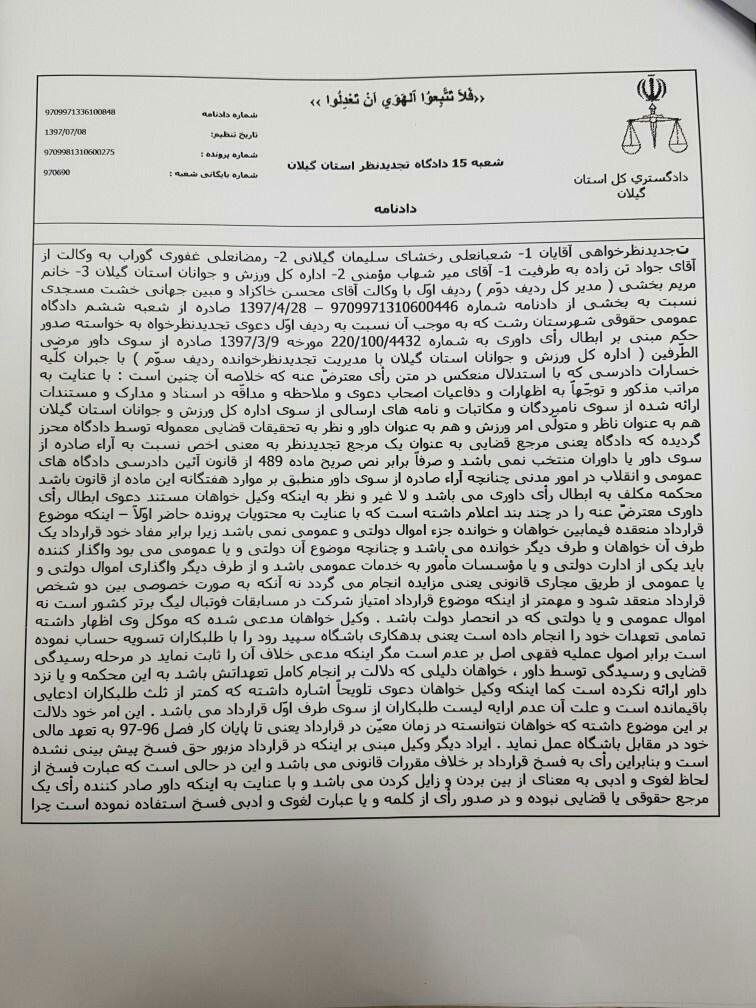 «فَلاَ تَتَّبِعوُا الهَوَي اَنْ تَعْدِلُوا »
شماره دادنامه 9709971336100848
تاریخ تنظیم: 1397/07/08
شماره پرونده : 9709981310600275
شماره بایگانی شعبه : 970690
شعبه 15 دادگاه تجدیدنظر استان گیلان
دادگستري کل استان
گیلان
دادنامه
تجدیدنظرخواهی آقایان 1- شعبانعلی رخشای سلیمان گیلانی 2- رمضانعلی غفوری گوراب به وکالت از
آقای جواد تن زاده به طرفیت 1- آقای میر شهاب مؤمنی 2- اداره کل ورزش و جوانان استان گیلان 3- خانم
مریم بخشی ( مدیر کل ردیف دوّم ) ردیف اوّل با وکالت آقای محسن خاکزاد و مبین جهانی خشت مسجدی
نسبت به بخشی از دادنامه شماره 9709971310600446 – 1397/4/28 صادره از شعبه ششم دادگاه
عمومی حقوقی شهرستان رشت که به موجب آن نسبت به ردیف اوّل دعوی تجدیدنظرخواه به خواسته صدور
حکم مبنی بر ابطال رأی داوری به شماره 220/100/4432 مورخه 1397/3/9 صادره از سوی داور مرضی
الطّرفین ( اداره کل ورزش و جوانان استان گیلان با مدیریت تجدیدنظرخوانده ردیف سوّم ) با جبران کلّیه
خسارات دادرسی که با استدلال منعکس در متن رأی معترضٌ عنه که خلاصه آن چنین است : با عنایت به
مراتب مذکور و توجّهاً به اظهارات و دفاعیات اصحاب دعوی و ملاحظه و مداقّه در اسناد و مدارک و مستندات
ارائه شده از سوی نامبردگان و مکاتبات و نامه های ارسالی از سوی اداره کل ورزش و جوانان استان گیلان
هم به عنوان ناظر و متولّی امر ورزش و هم به عنوان داور و نظر به تحقیقات قضایی معموله توسط دادگاه محرز
گردیده که دادگاه یعنی مرجع قضایی به عنوان یک مرجع تجدیدنظر به معنی اخص نسبت به آراء صادره از
سوی داور یا داوران منتخب نمی باشد و صرفاً برابر نص صریح ماده 489 از قانون آئین دادرسی دادگاه های
عمومی و انقلاب در امور مدنی چنانچه آراء صادره از سوی داور منطبق بر موارد هفتگانه این ماده از قانون باشد
محکمه مکلف به ابطال رأی داوری می باشد و لا غیر و نظر به اینکه وکیل خواهان مستند دعوی ابطال رأی
داوری معترضٌ عنه را در چند بند اعلام داشته است که با عنایت به محتویات پرونده حاضر اوّلاً – اینکه موضوع
قرارداد منعقده فیمابین خواهان و خوانده جزء اموال دولتی و عمومی نمی باشد زیرا برابر مفاد خود قرارداد یک
طرف آن خواهان و طرف دیگر خوانده می باشد و چنانچه موضوع آن دولتی و یا عمومی می بود واگذار کننده
باید یکی از ادارت دولتی و یا مؤسسات مأمور به خدمات عمومی باشد و از طرف دیگر واگذاری اموال دولتی و
یا عمومی از طریق مجاری قانونی یعنی مزایده انجام می گردد نه آنکه به صورت خصوصی بین دو شخص
قرارداد منعقد شود و مهمتر از اینکه موضوع قرارداد امتیاز شرکت در مسابقات فوتبال لیگ برتر کشور است نه
اموال عمومی و یا دولتی که در انحصار دولت باشد . وکیل خواهان مدعی شده که موکل وی اظهار داشته
تمامی تعهدات خود را انجام داده است یعنی بدهکاری باشگاه سپید رود را با طلبکاران تسویه حساب نموده
است برابر اصول عملیه فقهی اصل بر عدم است مگر اینکه مدعی خلاف آن را ثابت نماید در مرحله رسیدگی
قضایی و رسیدگی توسط داور ، خواهان دلیلی که دلالت بر انجام کامل تعهداتش باشد به این محکمه و یا نزد
داور ارائه نکرده است کما اینکه وکیل خواهان دعوی تلویحاً اشاره داشته که کمتر از ثلث طلبکاران ادعایی
باقیمانده است و علت آن عدم ارایه لیست طلبکاران از سوی طرف اوّل قرارداد می باشد . این امر خود دلالت
بر این موضوع داشته که خواهان نتوانسته در زمان معیّن در قرارداد یعنی تا پایان کار فصل 96-97 به تعهد مالی
خود در مقابل باشگاه عمل نماید . ایراد دیگر وکیل مبنی بر اینکه در قرارداد مزبور حق فسخ پیش بینی نشده
است و بنابراین رأی به فسخ قرارداد بر خلاف مقررات قانونی می باشد و این در حالی است که عبارت فسخ از
لحاظ لغوی و ادبی به معنای از بین بردن و زایل کردن می باشد و با عنایت به اینکه داور صادر کننده رأی یک
مرجع حقوقی یا قضایی نبوده و در صدور رأی از کلمه و یا عبارت لغوی و ادبی فسخ استفاده نموده است چرا